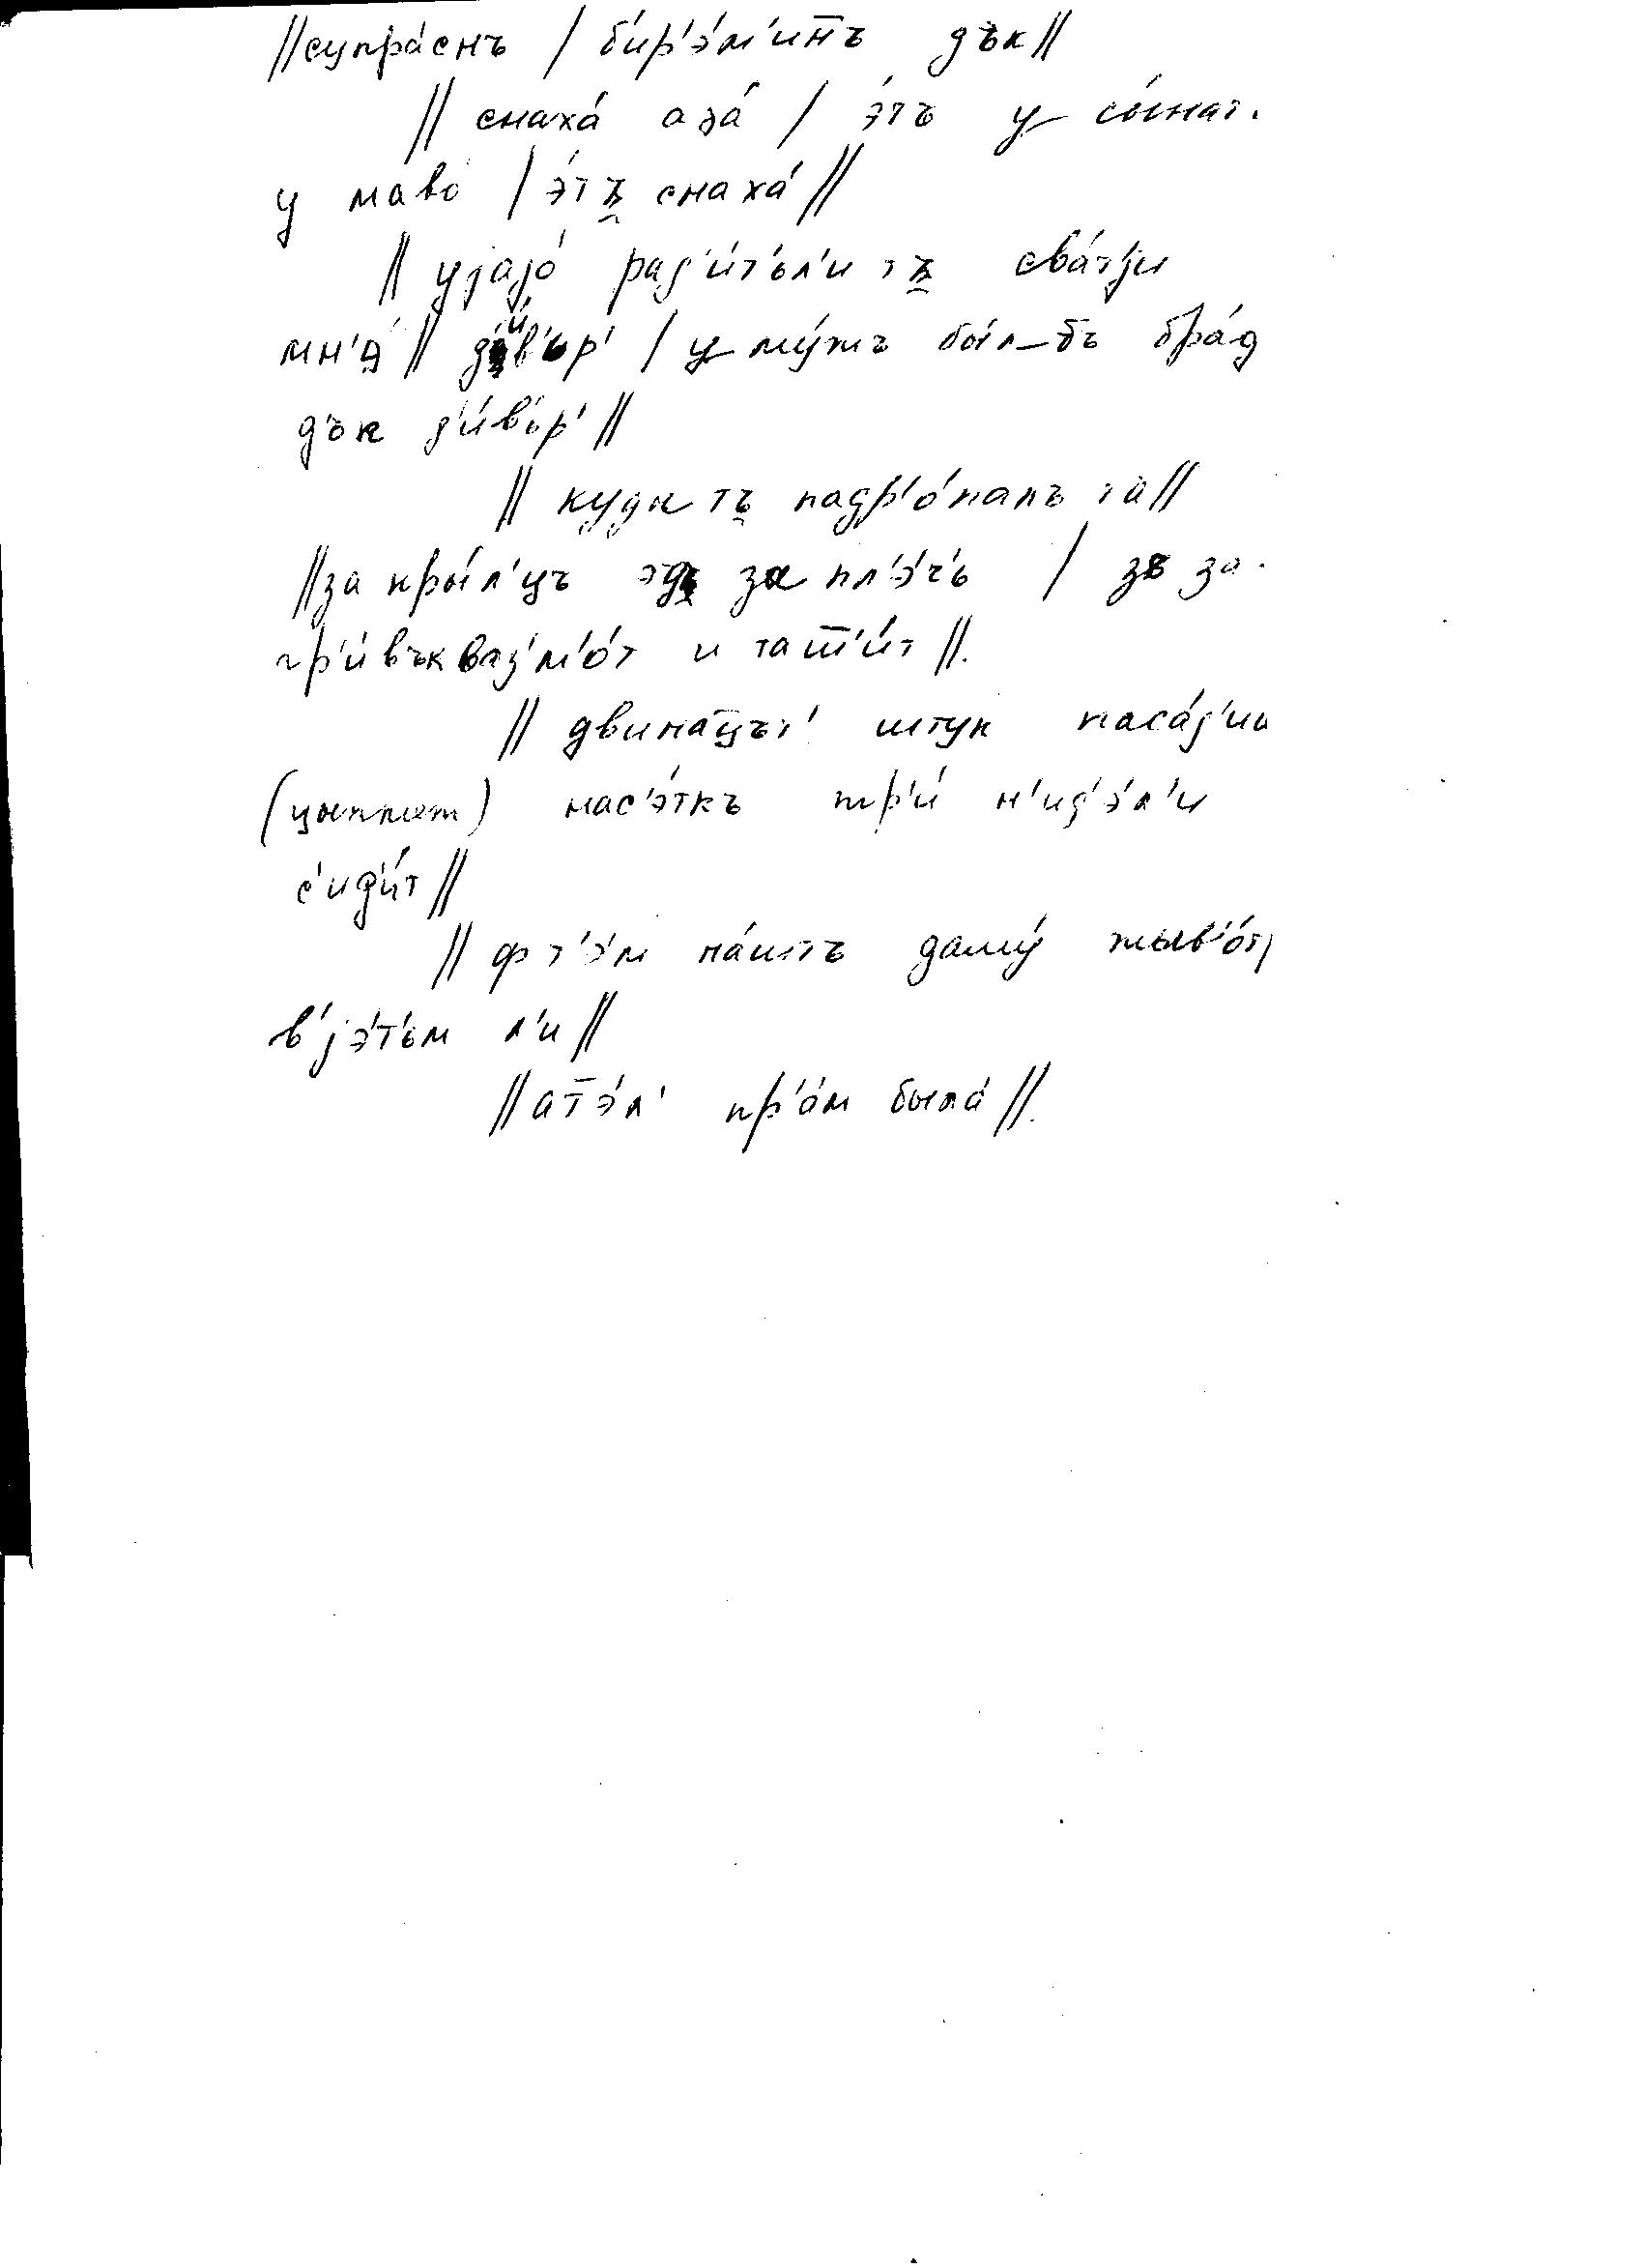 //супра́снъ / б'ир'э́м'ин̄ъ дък//
// снаха́ аза́ / э́тъ у сы́нат.
у маво́ / э́тъ̯ снаха́ //
// уjаjо́ рад'и́т'ьл'и тъ̯ сва́тjи
мн'а́ // д'и́в'ьр' / у му́жъ был-бъ бра́д
дък д'и́в'ьр' //
// куды тъ̯ падр'о́папъ та //
//за кры́л'цъ эдъ за пл'э́ч'ь / зъ за-
гр'и́вък ваз'м'о́т и таш̄'и́т //.
// двина́ц̄ът' штук паса́д'иш
(цыплят) нас'э́ткъ тр'и́ н'ид'э́л'и
с'ид'и́т //
// ф т'э́м на́штъ даму́ жыв'о́т/
в'jэ́т'ьм л'и //
// ат̄э́л' пр'а́м была́ //.